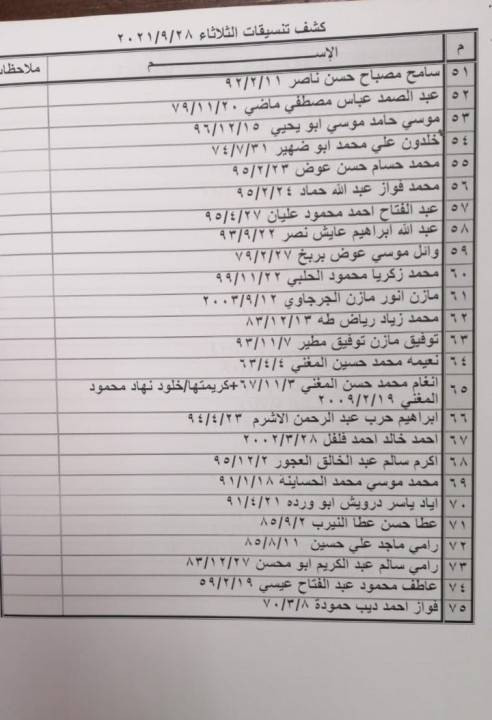 كشف تنسيقات الثلاثاء ٢٠٢١/٩/٢٨
م الإســـم ملاحظات
٥١ سامح مصباح حسن ناصر ٩٢/٢/١١
٥٢ عبد الصمد عباس مصطفي ماضي ٧٩/١١/٢٠
٥٣ موسي حامد موسي ابو يحيي ٩٦/١٢/١٥
٥٤ خلدون علي محمد ابو ضهير ٧٤/٧/٣١
٥٥ محمد حسام حسن عوض ٩٥/٢/٢٣
٥٦ محمد فواز عبد الله حماد ٩٥/٢/٢٤
٥٧ عبد الفتاح احمد محمود عليان ٩٥/٤/٢٧
٥٨ عبد الله ابراهيم عايش نصر ٩٣/٩/٢٢
٥٩ وائل موسي عوض بربخ ٧٩/٢/٢٧
٦٠ محمد زكريا محمود الحلبي ٩٩/١١/٢٢
٦١ مازن انور مازن الجرجاوي ٢٠٠٣/٩/١٢
٦٢ محمد زياد رياض طه ٨٣/١٢/١٣
٦٣ توفيق مازن توفيق مطير ٩٣/١١/٧
٦٤ نعيمه محمد حسين المغني ٦٣/٤/٤
٦٥ انغام محمد حسن المغني ٦٧/١١/٣+كريمتها/خلود نهاد محمود
المغني ٢٠٠٩/٢/١٩
٦٦ ابراهيم حرب عبد الرحمن الاشرم ٩٤/٤/٢٣
٦٧ احمد خالد احمد فلفل ٢٠٠٢/٣/٢٨
٦٨ اكرم سالم عبد الخالق العجور ٩٥/١٢/٢
٦٩ محمد موسي محمد الحساينه ٩١/١/١٨
٧٠ اياد ياسر درويش ابو ورده ٩١/٤/٢١
٧١ عطا حسن عطا النيرب ٨٥/٩/٢
٧٢ رامي ماجد علي حسين ٨٥/٨/١١
٧٣ رامي سالم عبد الكريم ابو محسن ٨٣/١٢/٢٧
٧٤ عاطف محمود عبد الفتاح عيسي ٥٩/٢/١٩
٧٥ فواز احمد ديب حمودة ٧٠/٣/٨